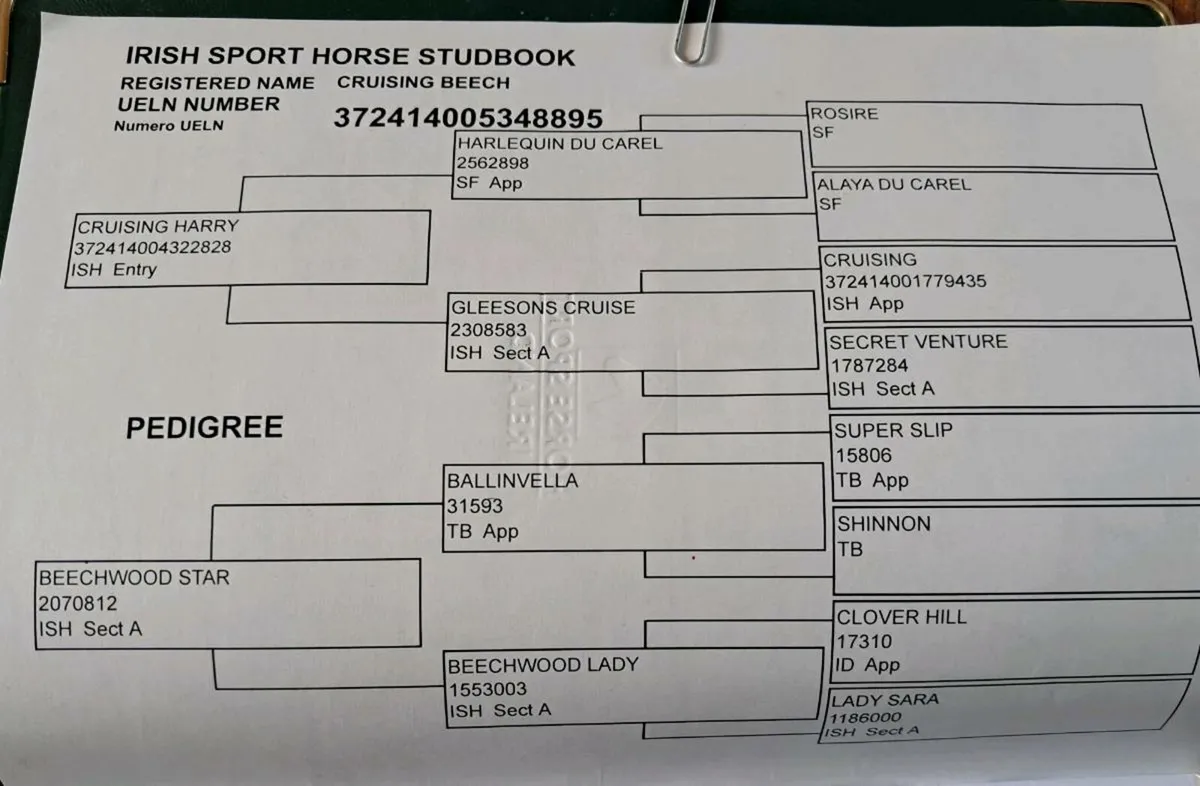 IRISH SPORT HORSE STUDBOOK
REGISTERED NAME CRUISING BEECH
UELN NUMBER
Numero UELN
372414005348895
CRUISING HARRY
372414004322828
ISH Entry
HARLEQUIN DU CAREL
2562898
SF App
GLEESONS CRUISE
2308583
ISH Sect A
ROSIRE
SF
ALAYA DU CAREL
SF
CRUISING
372414001779435
ISH App
SECRET VENTURE
1787284
ISH Sect A
PEDIGREE
BEECHWOOD STAR
2070812
ISH Sect A
BALLINVELLA
31593
TB App
BEECHWOOD LADY
1553003
ISH Sect A
SUPER SLIP
15806
TB App
SHINNON
TB
CLOVER HILL
17310
ID App
LADY SARA
1186000
ISH Sect A